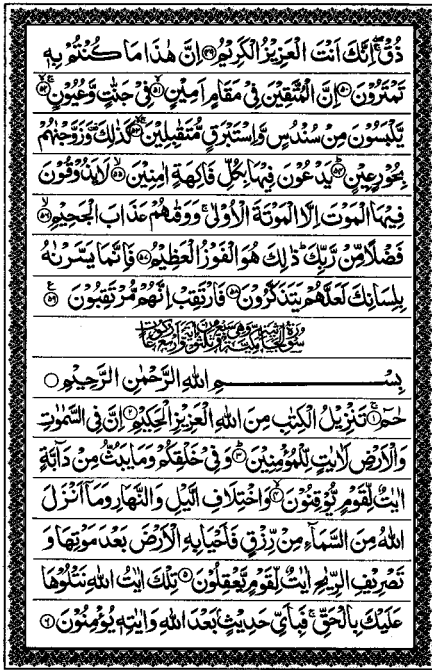 ذُقْ ۚ اِنَّكَ اَنْتَ الْعَزِيْزُ الْكَرِيْمُ ﴿۴۹﴾ اِنَّ هٰذَا مَا كُنْتُمْ بِهٖ
تَمْتَرُوْنَ ﴿۵۰﴾ اِنَّ الْمُتَّقِيْنَ فِيْ مَقَامٍ اَمِيْنٍ ﴿۵۱﴾ فِيْ جَنّٰتٍ وَّعُيُوْنٍ ﴿۵۲﴾
يَّلْبَسُوْنَ مِنْ سُنْدُسٍ وَّاِسْتَبْرَقٍ مُّتَقٰبِلِيْنَ ﴿۵۳﴾ كَذٰلِكَ ۗ وَزَوَّجْنٰهُمْ
بِحُوْرٍ عِيْنٍ ﴿۵۴﴾ يَدْعُوْنَ فِيْهَا بِكُلِّ فَاكِهَةٍ اٰمِنِيْنَ ﴿۵۵﴾ لَا يَذُوْقُوْنَ
فِيْهَا الْمَوْتَ اِلَّا الْمَوْتَةَ الْاُوْلٰى ۚ وَوَقٰىهُمْ عَذَابَ الْجَحِيْمِ ﴿۵۶﴾
فَضْلًا مِّنْ رَّبِّكَ ۗ ذٰلِكَ هُوَ الْفَوْزُ الْعَظِيْمُ ﴿۵۷﴾ فَاِنَّمَا يَسَّرْنٰهُ
بِلِسَانِكَ لَعَلَّهُمْ يَتَذَكَّرُوْنَ ﴿۵۸﴾ فَارْتَقِبْ اِنَّهُمْ مُّرْتَقِبُوْنَ ﴿۵۹﴾
بِسْمِ اللّٰهِ الرَّحْمٰنِ الرَّحِيْمِ
حٰمٓ ﴿۱﴾ تَنْزِيْلُ الْكِتٰبِ مِنَ اللّٰهِ الْعَزِيْزِ الْحَكِيْمِ ﴿۲﴾ اِنَّ فِي السَّمٰوٰتِ
وَالْاَرْضِ لَاٰيٰتٍ لِّلْمُؤْمِنِيْنَ ﴿۳﴾ وَفِيْ خَلْقِكُمْ وَمَا يَبُثُّ مِنْ دَآبَّةٍ
اٰيٰتٌ لِّقَوْمٍ يُّوْقِنُوْنَ ﴿۴﴾ وَاخْتِلَافِ الَّيْلِ وَالنَّهَارِ وَمَآ اَنْزَلَ
اللّٰهُ مِنَ السَّمَآءِ مِنْ رِّزْقٍ فَاَحْيَا بِهِ الْاَرْضَ بَعْدَ مَوْتِهَا وَ
تَصْرِيْفِ الرِّيٰحِ اٰيٰتٌ لِّقَوْمٍ يَّعْقِلُوْنَ ﴿۵﴾ تِلْكَ اٰيٰتُ اللّٰهِ نَتْلُوْهَا
عَلَيْكَ بِالْحَقِّ ۚ فَبِاَيِّ حَدِيْثٍۭ بَعْدَ اللّٰهِ وَاٰيٰتِهٖ يُؤْمِنُوْنَ ﴿۶﴾